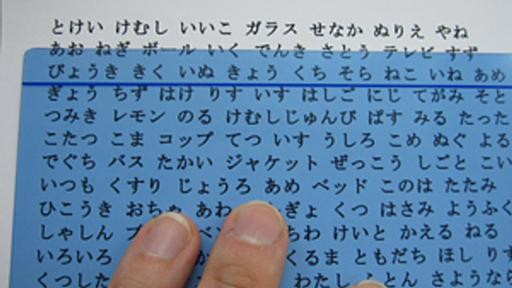 とけい けむし いいこ ガラス せなか ぬりえ やね
あお ねぎ ボール いく でんき さとう テレビ すず
びょうき きく いぬ きょう くち そら ねこ いね あめ
ぎょう ちず はけ りす いす はしご にじ てがみ そと
つみき レモン のる けむし じゅんび ぱす みる たった
こたつ こま コップ てつ いす うしろ こめ ぬぐ よる
でぐち バス たかい ジャケット ぜっこう しごと こい
いつも くすり じょうろ あめ ベッド このは たたみ
ひこうき おちゃ くつ はさみ ようふく
しゃしん けいと かえる ねる
いろいろ くるま ともだち ほし りす
くつした わたし ふとん さようなら